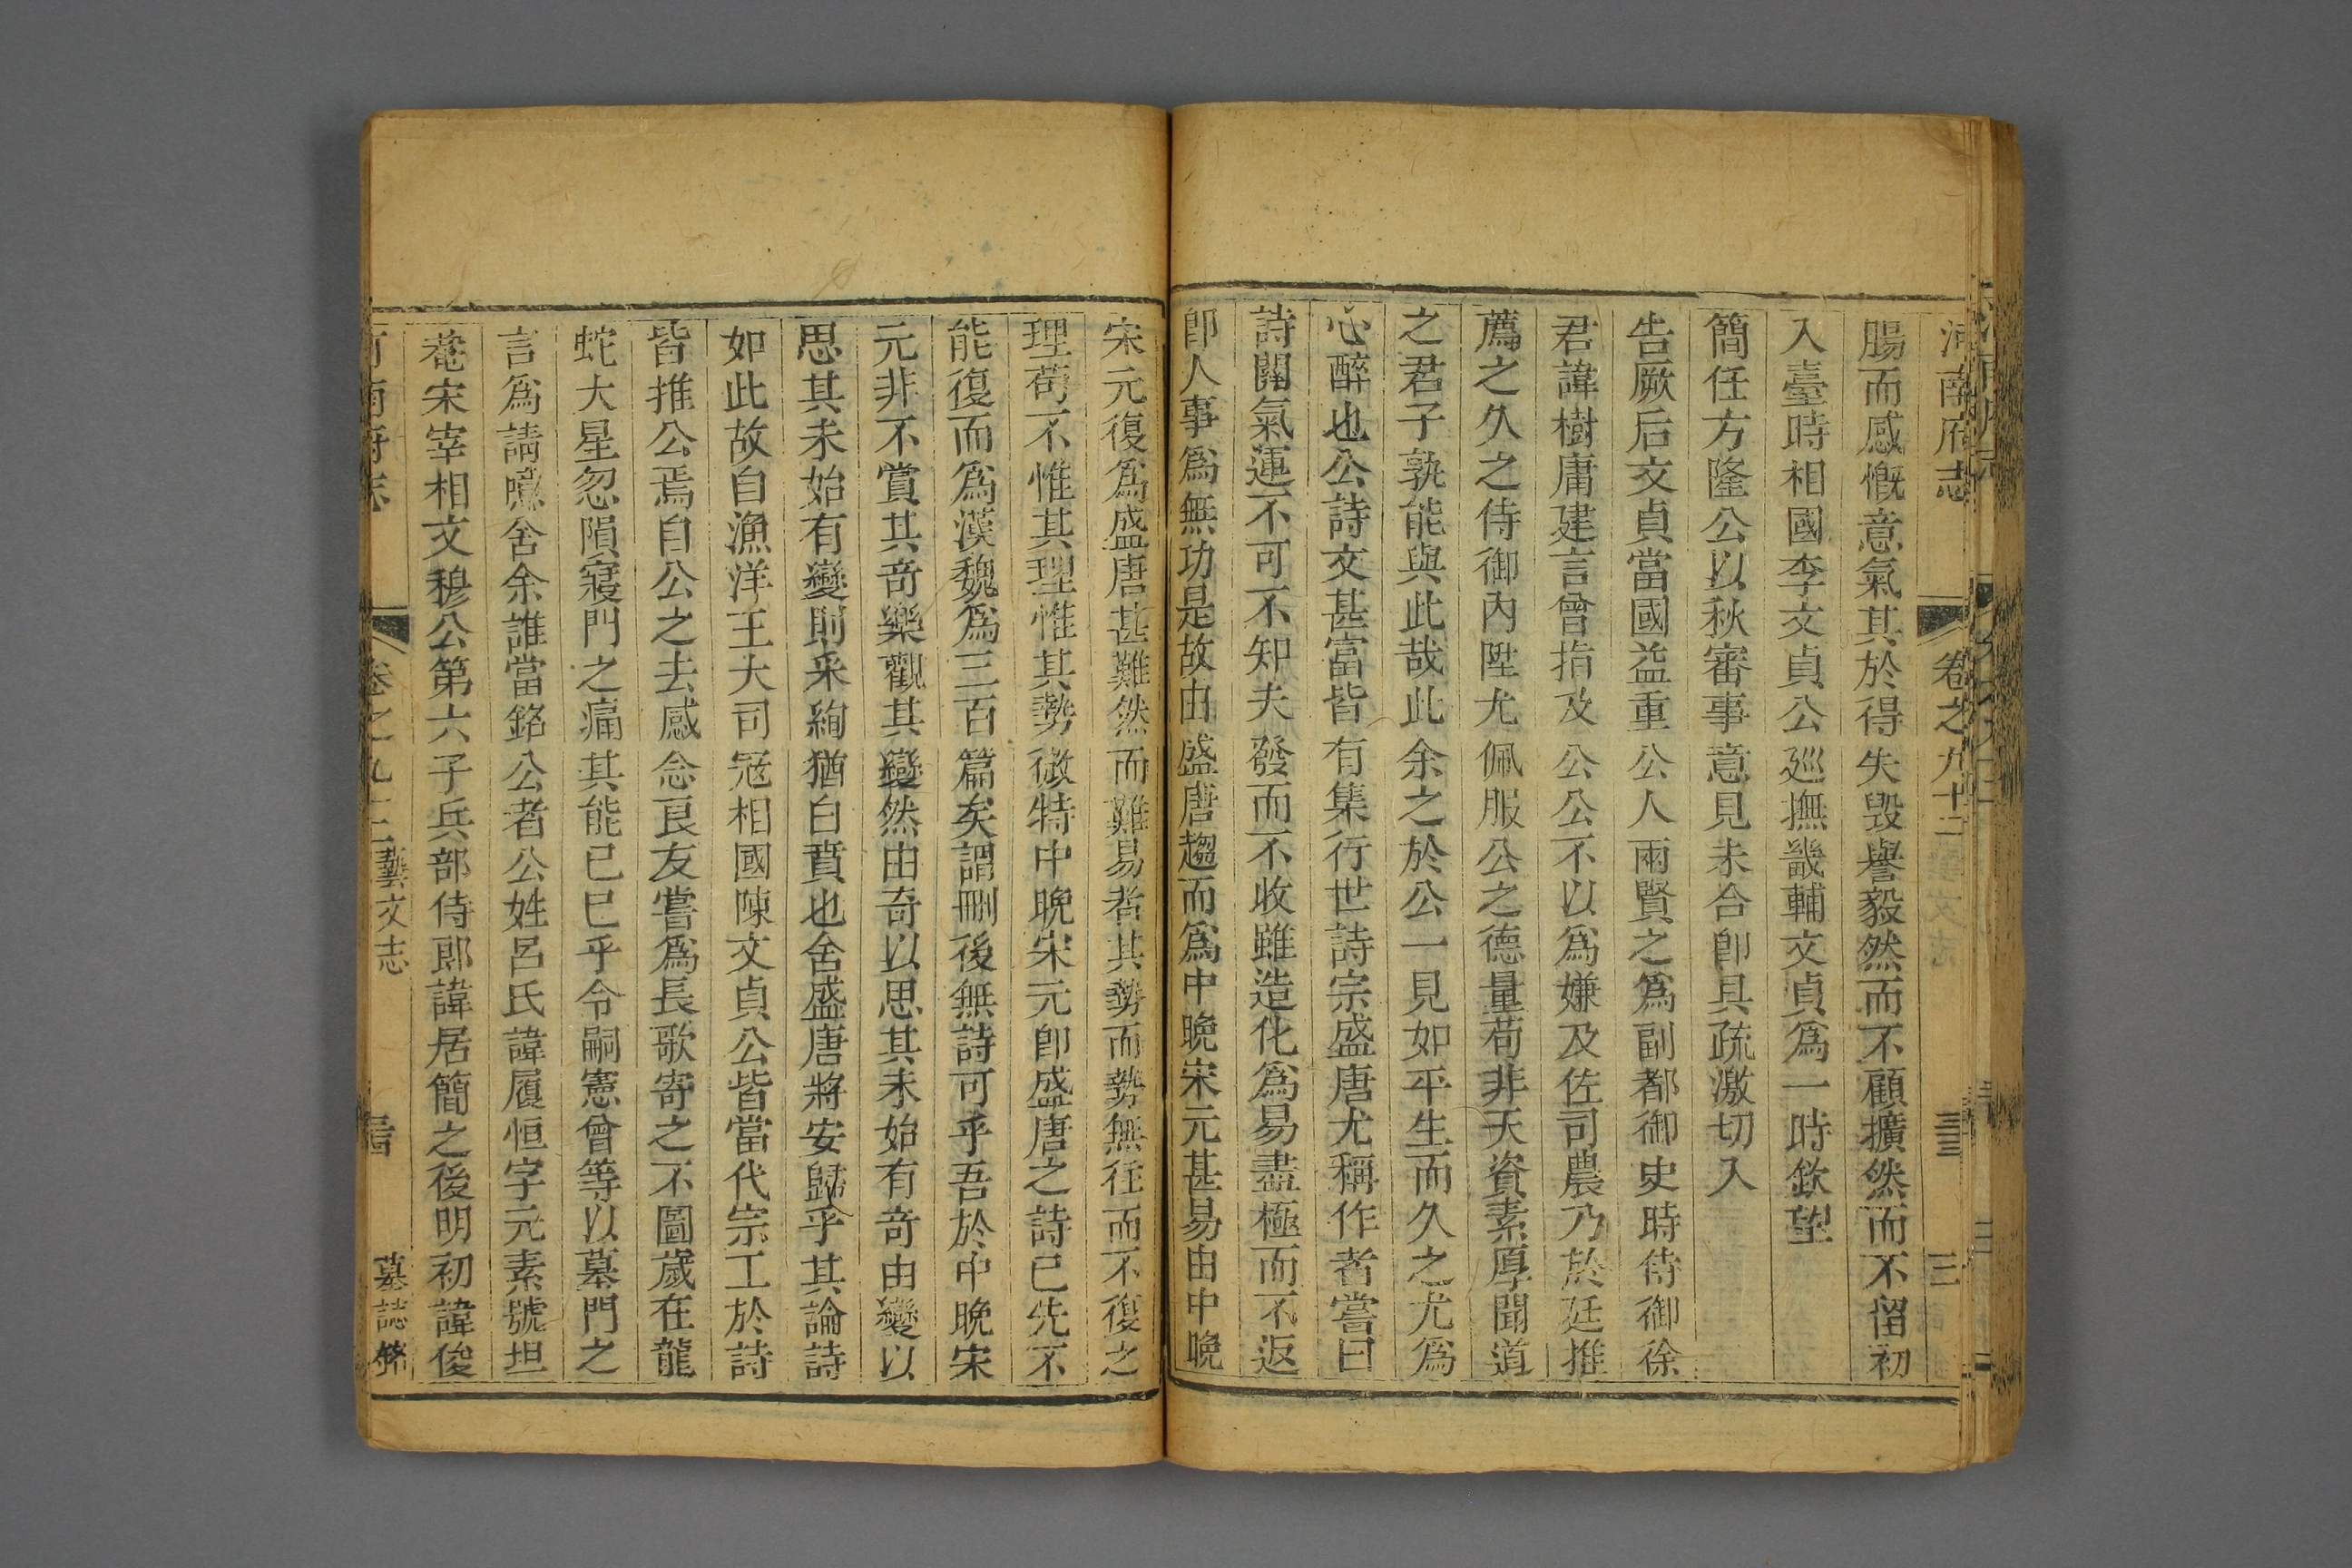 河南府志 卷之九十二
腸而感慨意氣其於得失毀譽毅然而不顧擴然而不留初
入臺時相國李文貞公廵撫畿輔文貞爲一時欽望
簡任方隆公以秋審事意見未合卽具疏激切入
告厥后文貞當國益重公人兩賢之爲副都御史時侍御徐
君諱樹庸建言曾指及公公不以爲嫌及佐司農乃於廷推
薦之久之侍御內陞尤佩服公之德量苟非天資素厚聞道
之君子孰能與此哉此余之於公一見如平生而久之尤爲
心醉也公詩文甚富皆有集行世詩宗盛唐尤稱作者嘗曰
詩關氣運不可不知夫發而不收雖造化爲易盡極而不返
卽人事爲無功是故由盛唐趨而爲中晚宋元甚易由中晚
宋元復爲盛唐甚難然而難易者其勢而勢無往而不復之
理苟不惟其理惟其勢微特中晚宋元卽盛唐之詩已先不
能復而爲漢魏爲三百篇矣謂刪後無詩可乎吾於中晚宋
元非不賞其奇樂觀其變然由奇以思其未始有奇由變以
思其未始有變則采絢猶白賁也舍盛唐將安歸乎其論詩
如此故自漁洋王大司冦相國陳文貞公皆當代宗工於詩
皆推公焉自公之去感念良友嘗爲長歌寄之不圖歲在龍
蛇大星忽隕寢門之痛其能已已乎令嗣憲曾等以墓門之
言爲請噫舍余誰當銘公者公姓呂氏諱履恒字元素號坦
菴宋宰相文穆公第六子兵部侍郎諱居簡之後明初諱俊
河南府志 卷之九十二 藝文志 墓誌銘